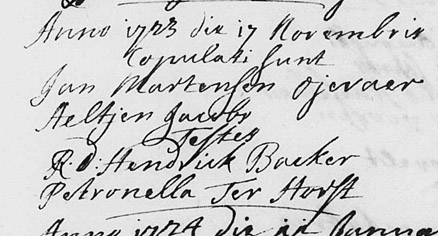 Anno 1723 die 17 Novembris
Copulati sunt
Jan Martensen Ojevaer
Aeltjen Jacobs
Testes
R. D. Hendrick Backer
Petronella Ter Horst
Anno 1724 die